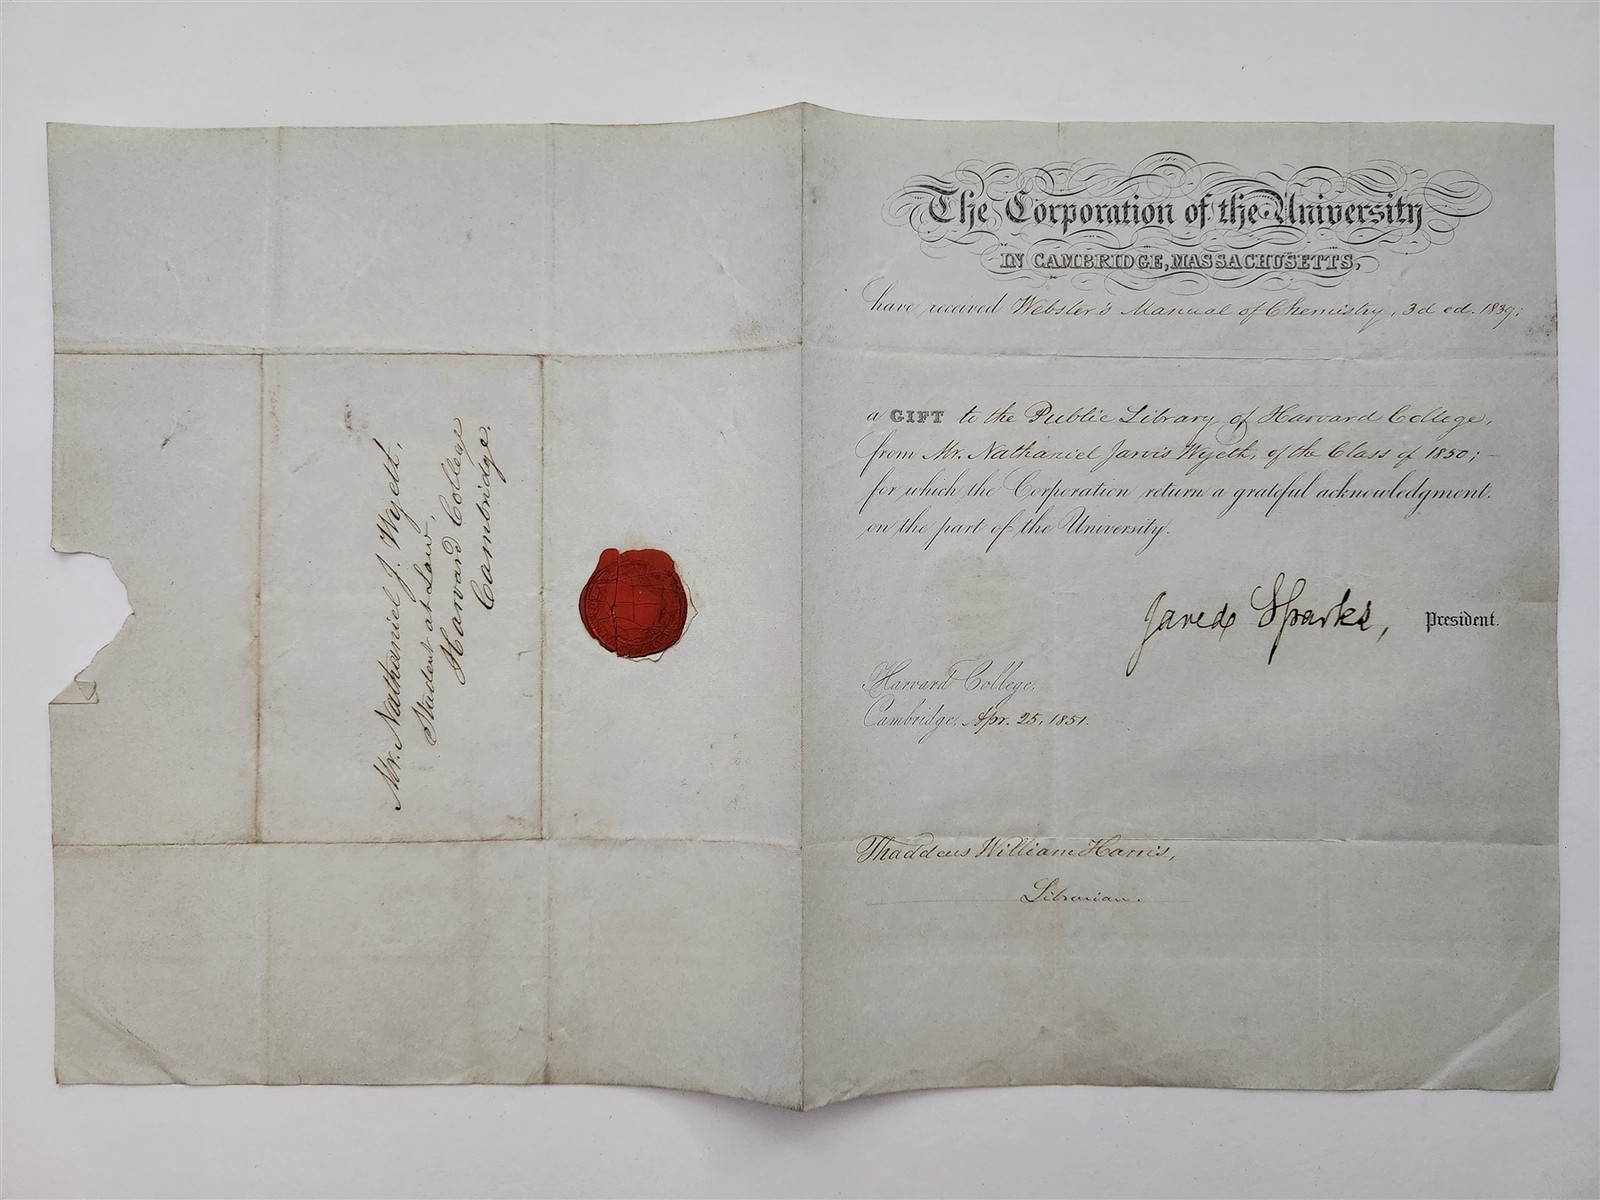 Mr. Nathaniel J. Wyeth,
Student at Law,
Harvard College
Cambridge.
The Corporation of the University
IN CAMBRIDGE, MASSACHUSETTS,
have received Webster's Manual of Chemistry, 3d ed. 1839;
a GIFT to the Public Library of Harvard College,
from Mr. Nathaniel Jarvis Wyeth, of the Class of 1850; –
for which the Corporation return a grateful acknowledgment.
on the part of the University.
Jared Sparks, President.
Harvard College.
Cambridge, Apr. 25, 1851.
Thaddeus William Harris,
Librarian.